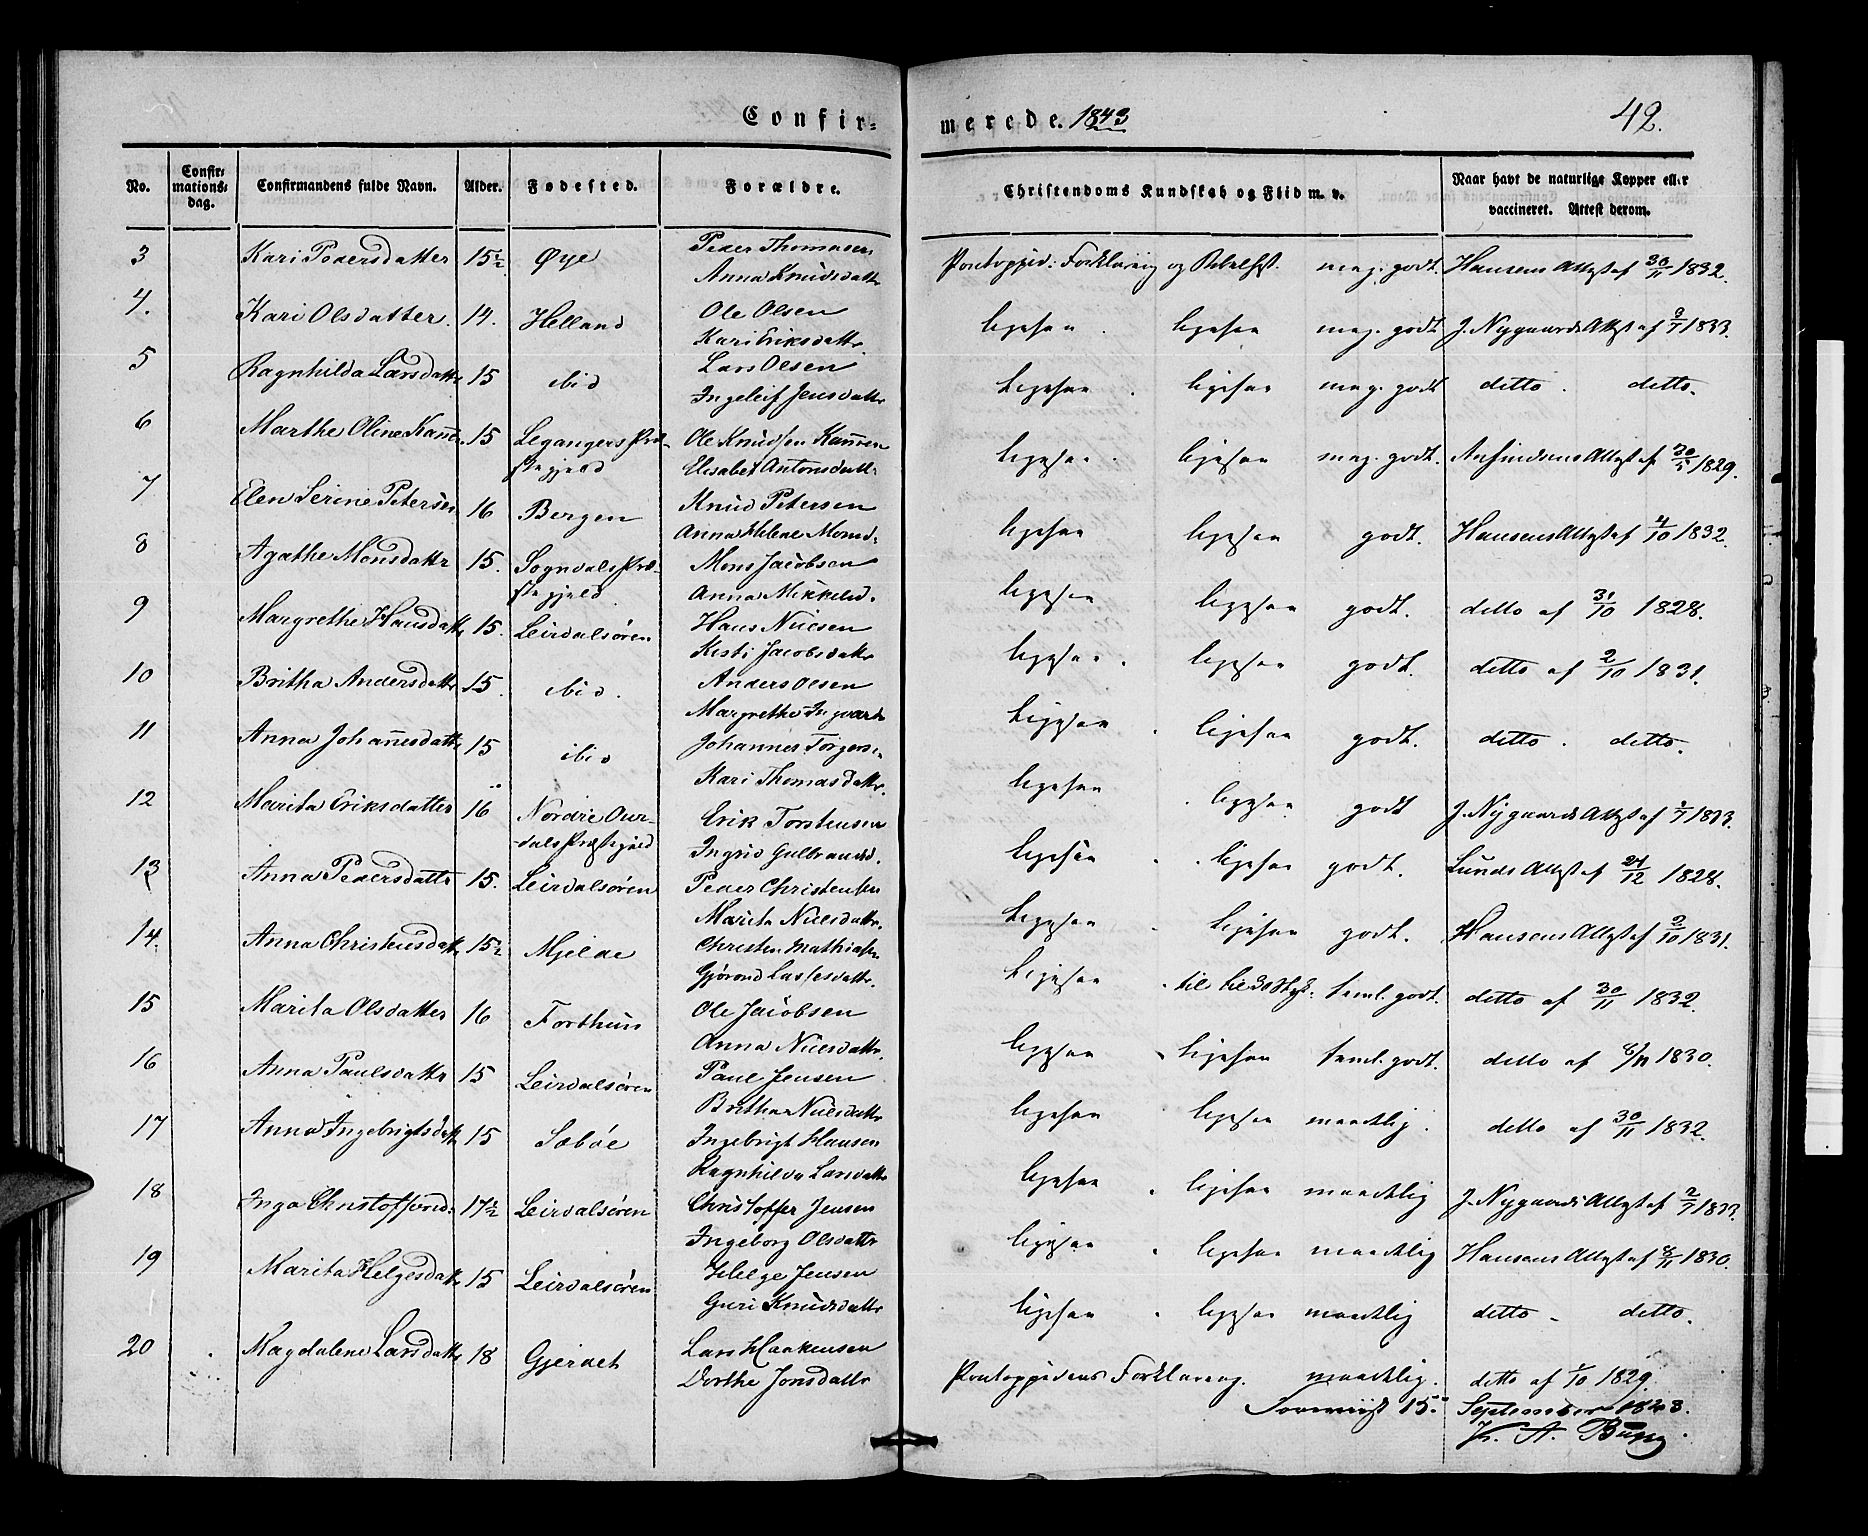 Confir-
merede. 1843
42.
No.
Confir-
mations-
dag.
Confirmandens fulde Navn.
Alder.
Fødested.
Forældre.
Christendoms Kundskab og Flid m. v.
Naar havt de naturlige Kopper eller
vaccineret. Attest derom.
3 Kari Pedersdatter 15½ Øye Peder Thomasen
Anna Knudsdattr Pontoppid: Forklaring og meg. godt. Hansens Attest af 30/11 1832.
4. Kari Olsdatter. 14. Helland Ole Olsen
Kari Eriksdattr. ligesaa . ligesaa meg. godt J. Nygaards Attest af 2/7 1833.
5 Ragnhilda Larsdattr 15 ibid Lars Olsen
Ingeleif Jensdattr ligesaa . ligesaa meg. godt ditto . ditto.
6 Marthe Oline 15 Legangers Præ-
stegjeld Ole Knudsen
Elisabet Antonsdattr ligesaa . ligesaa meg. godt. Attest af 30/5 1829.
7 Elen Serine Petersen 16 Bergen Knud Petersen
Anna Helene Monsd. ligesaa ligesaa godt. Hansens Attest af 4/10 1832.
8 Agathe Monsdattr 15. Sogndals Præ-
stegjeld Mons Jacobsen
Anna Mikkelsd. ligesaa ligesaa godt. ditto af 31/10 1828.
9 Margrethe Hansdattr 15. Leirdalsøren Hans Nielsen
Kisti Jacobsdattr ligesaa . ligesaa godt. ditto af 2/10 1831.
10 Britha Andersdattr 15. ibid. Anders Olsen
Margrethe ligesaa . ligesaa godt. ditto . ditto.
11 Anna Johannesdattr 15 ibid Johannes Torgers.
Kari Thomasdattr. ligesaa . ligesaa godt J. Nygaards Attest af 2/7 1833.
12 Marita Eriksdatter 16 Nordre Our-
dals Præstegjeld Erik Torstensen
Ingrid Gulbrandsd. ligesaa . ligesaa godt. Lunds Attest af 24/12 1828.
13 Anna Pedersdattr 15. Leirdalsøren Peder Christensen
Marita Nielsdattr. ligesaa . ligesaa godt. Hansens Attest af 2/10 1831.
14. Anna Christensdattr 15½ Mjelde Christen Mathiasen
Gjørond Lassesdattr. ligesaa . til teml. godt. ditto af 30/11 1832.
15 Marita Olsdatter 16 Forthun Ole Jacobsen
Anna Nielsdattr. ligesaa . ligesaa teml. godt. ditto af 8/11 1830.
16 Anna Paulsdattr 15 Leirdalsøren Paul Jensen
Britha Nielsdattr ligesaa ligesaa maadelig. ditto af 30/11 1832.
17 Anna Ingebrigtsdattr 15 Sæbøe Ingebrigt Hansen
Ragnhilda Larsdattr ligesaa . ligesaa maadelig J. Nygaards Attest af 2/7 1833.
18 Inga Christoffersd. 17½ Leirdalsøren Christoffer Jensen
Ingeborg Olsdattr ligesaa . ligesaa maadelig Hansens Attest af 8/11 1830.
19 Marita Helgesdattr 15 Leirdalsøren Helge Jensen
Guri Knudsdattr ligesaa . ligesaa maadelig ditto . ditto.
20 Magdalene Larsdattr 18 Gjerdet Lars Haakensen
Dorthe Jonsdattr Pontoppidans Forklaring. maadelig. ditto af 1/10 1829.
15. September 1843.